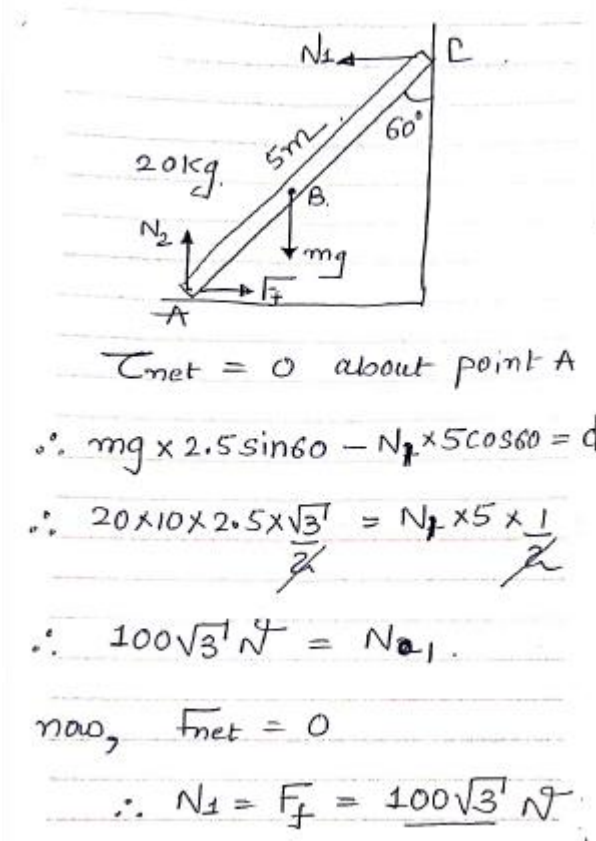 N1 C
60°
5m
20kg.
B.
N2
mg
Ff
A
τnet = 0 about point A
∴ mg × 2.5 sin60 − N1 × 5cos60 = 0
∴ 20×10×2.5×√3/2 = N1 ×5 × 1/2
∴ 100√3 N = N1.
now, Fnet = 0
∴ N1 = Ff = 100√3 N